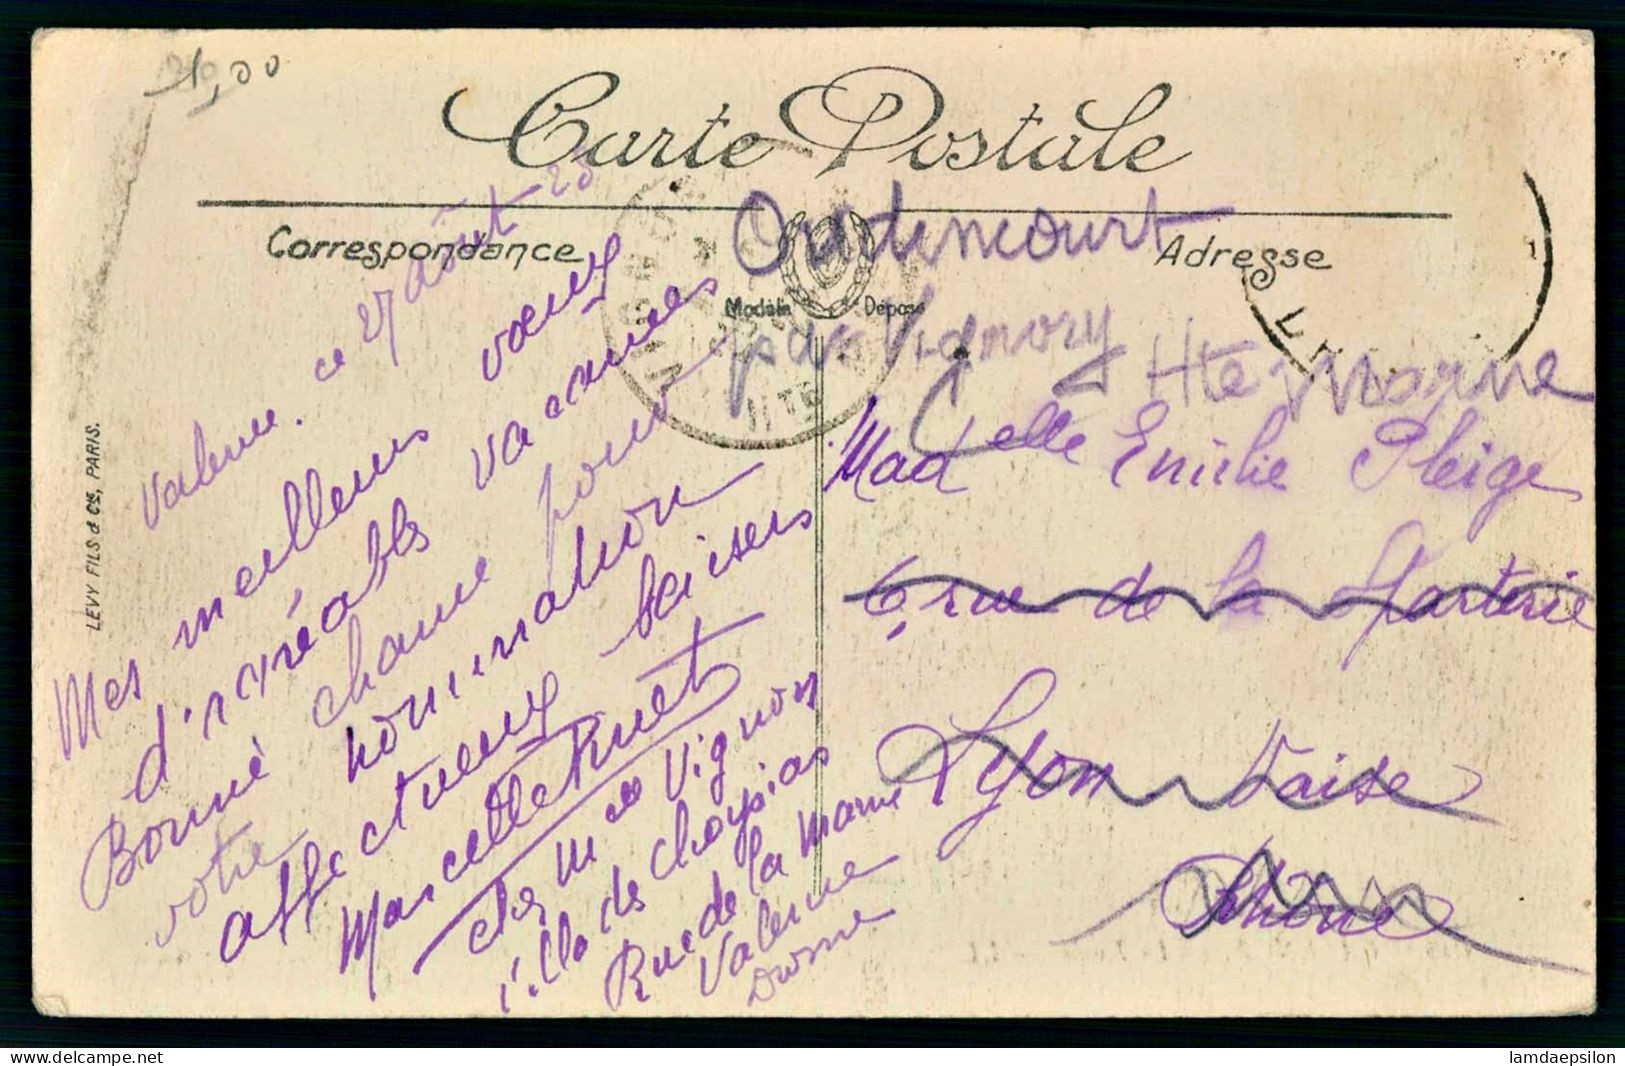 21,00
Carte Postale
Correspondance
Adresse
Modèle Déposé
LEVY FILS & Cie, PARIS.
Valence. ce 27 Août 23
Mes meilleurs voeux
d'agréables vacances
Bonne chance pour
votre nomination
affectueux baisers
Marcelle Runet
chez Mme Vignon
villa des
Rue de la Marne
Valence
Drome
Oudincourt
par Vignory
Hte Marne
Madelle Emilie Pleige
6 rue de la
Lyon Vaise
Rhône
lamdaepsilon
delcampe.net